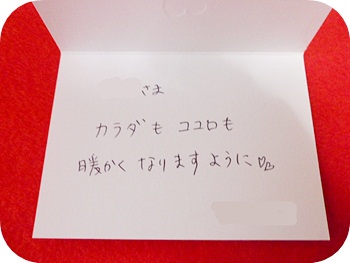 さま
カラダも ココロも
暖かく なりますように♡